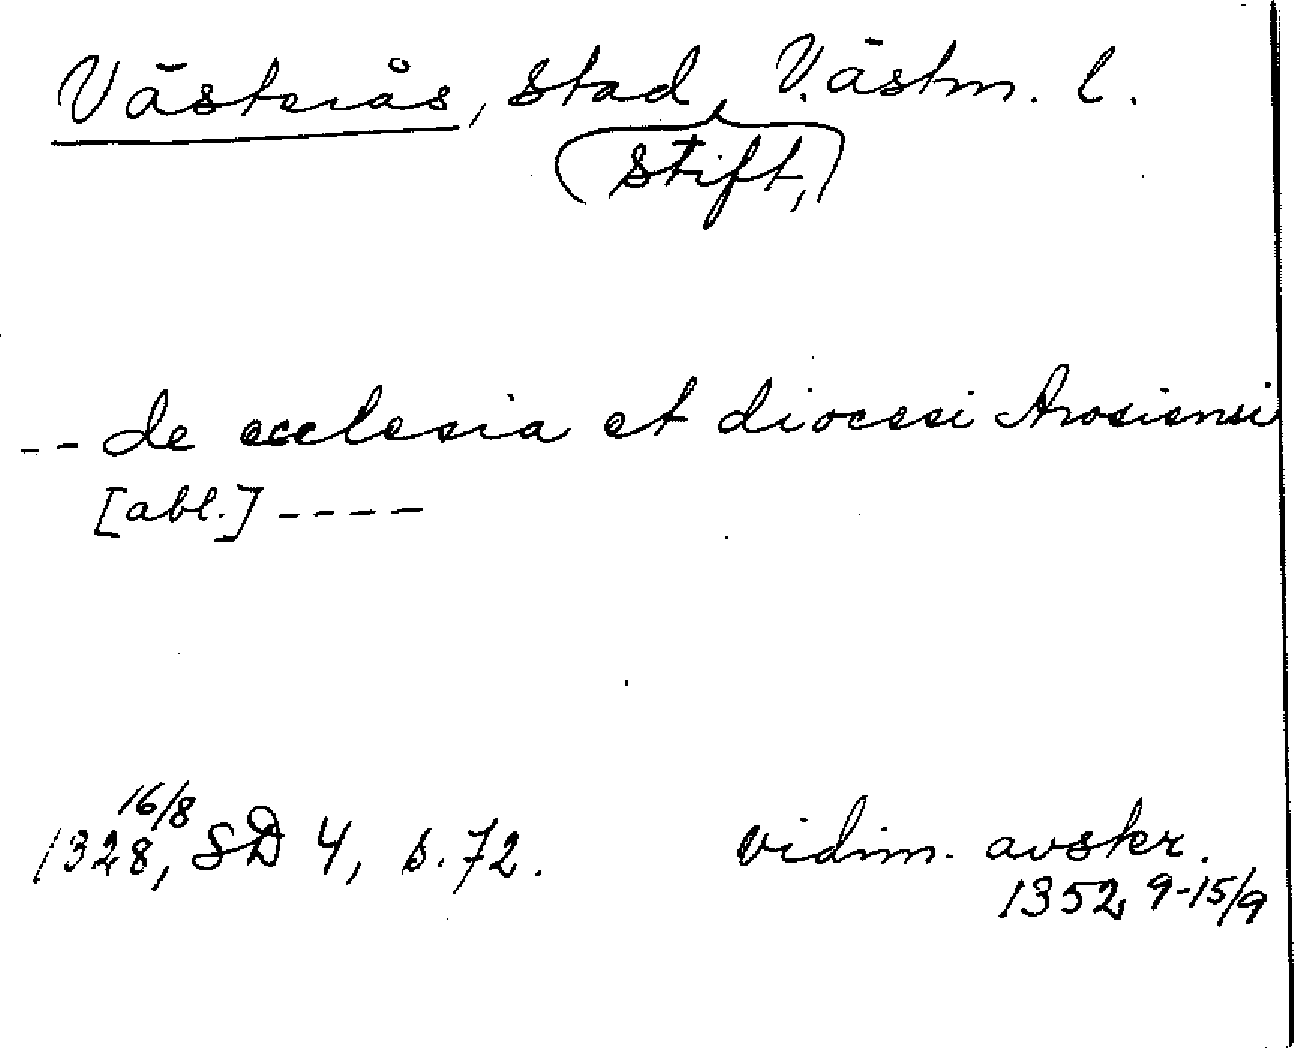 Västerås, stad, Västm. l.
(stift,)
-- de ecclesia et diocesi Arosiensi
[abl.] ----
1328, 16/8 SD 4, s. 72. vidim. avskr.
1352 9-15/9